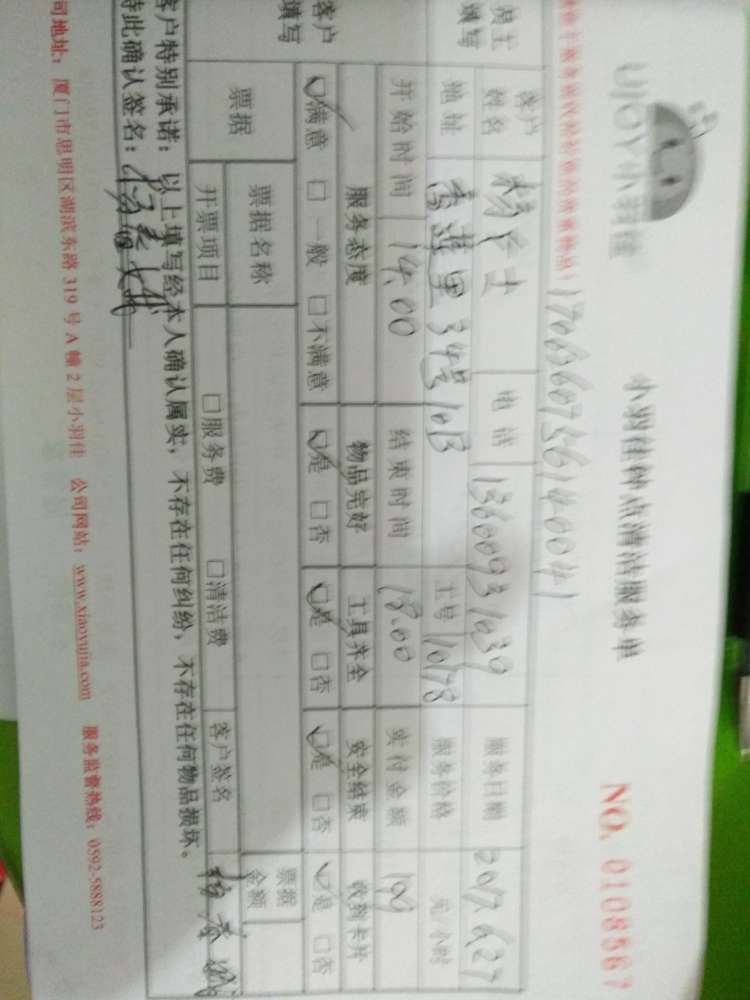 UJOY小羽佳
小羽佳钟点清洁服务单
NO. 0108567
17063607356140041
雇主填写
客户姓名 杨女士 电话 13600931039 服务日期 2017.6.27
地址 莲里34号 工号 10178 服务价格 元/小时
开始时间 14.00 结束时间 18.00 实付金额 199
客户填写
服务态度 物品完好 工具齐全 安全结束 收到卡片
☑满意 □一般 □不满意 ☑是 □否 ☑是 □否 ☑是 □否 ☑是 □否
票据 票据名称 票据金额
开票项目 □服务费 □清洁费 客户签名
客户特别承诺：以上填写经本人确认属实，不存在任何纠纷，不存在任何物品损坏。
特此确认签名：
司地址：厦门市思明区湖滨东路 319 号 A 幢 2 层小羽佳 公司网站：www.xiaoyujia.com 服务监督热线：0592-5888123